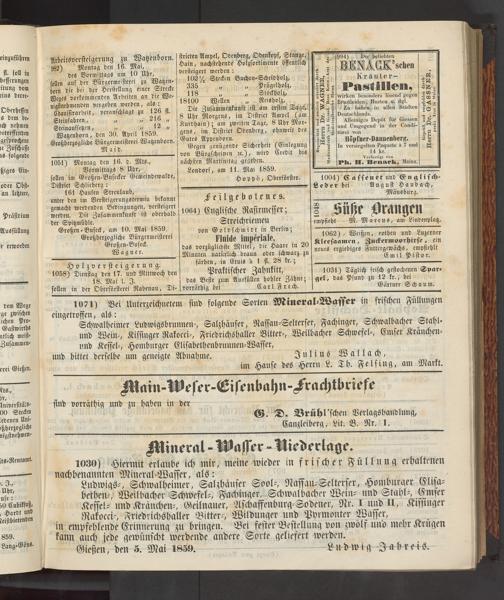 Arbeitsversteigerung zu Watzenborn.
Montag den 16. Mai,
des Vormittags um 10 Uhr,
sollen auf der Bürgermeisterei zu Watzenborn
die bei Herstellung einer Strecke
Weges vorkommenden Arbeiten an die
Wenigstnehmenden vergeben werden, als:
Chaussirarbeit, veranschlagt zu 126 fl.
Steinfahren, " " 216 "
Steinausschlagen, " " 12 "
Watzenborn, den 30. April 1859.
Großherzogliche Bürgermeisterei Watzenborn
1051) Montag den 16. d. Mts.,
Vormittags 8 Uhr,
sollen im Großen-Busecker Gemeindewald,
District Schilberg:
161 Haufen Streulaub,
unter den im Versteigerungstermin bekannt
gemacht werdenden Bedingungen versteigert
werden. Die Zusammenkunft ist oberhalb
der Spitzmühle.
Großen-Buseck, am 10. Mai 1859.
Großherzogliche Bürgermeisterei
Großen-Buseck.
Wagner.
Holzversteigerung.
1058) Dienstag den 17. und Mittwoch den
18. Mai l. J.
sollen in der Oberförsterei Rabenau, Di-
stricten Ampel, Odenberg, Odenkopf, Stange,
Hain, nachstehende Holzsortimente öffentlich
versteigert werden:
102½ Stecken Buchen-Scheidholz,
335 " " Prügelholz,
118 " " Stockholz,
18100 Wellen Reisholz.
Die Zusammenkunft ist am ersten Tage,
8 Uhr Morgens, im District Ampel (am
Kurzhain); am zweiten Tage, 8 Uhr Mor-
gens, im District Odenberg, ohnweit des
Gutes Appenborn.
Gegen genügende Sicherheit (Einlegung
von Bürgscheinen ꝛc.), wird Credit bis
nächsten Martinitag gegeben.
Londorf, am 11. Mai 1859.
Hoppé, Oberförster.
Feilgebotenes.
1064) Englische Rasirmesser;
Streichriemen
von Goldschmidt in Berlin;
Finide impériale,
das vorzüglichste Mittel, die Haare in 20
Minuten natürlich braun oder schwarz zu
färben, in Etuis à 1 fl. 28 kr.;
Praktischer Zahnkitt,
das Beste zum Ausfüllen hohler Zähne;
vorräthig bei Carl Frech.
(994) Die beliebten
BENACK'schen
Kräuter-
Pastillen,
Höpfner-Dannenberg.
In versiegelten Paquets à 7 und
14 kr.
Ph. H. Benack, Mainz.
1004) Cassener und Englisch-
Leder bei August Haubach,
Mäusburg.
1048 Süße Orangen
empfiehlt W. Morenz, am Lindenplatz.
1062) Weißen, rothen und Luzerner
Kleesaamen, Zuckermoorhirse, ein
neues ergiebiges Futtergewächs, empfiehlt
Emil Pistor.
1031) Täglich frisch gestochenen Spar-
gel, das Pfund zu 12 kr., bei
Gärtner Schaum.
1071) Bei Unterzeichnetem sind folgende Sorten Mineral-Wasser in frischen Füllungen
eingetroffen, als:
Schwalheimer Ludwigsbrunnen, Salzhäuser, Nassau-Selterser, Fachinger, Schwalbacher Stahl-
und Wein-, Kissinger Rakoczi-, Friedrichshaller Bitter-, Weilbacher Schwefel-, Emser Kränchen-
und Kessel-, Homburger Elisabethenbrunnen-Wasser,
und bittet derselbe um geneigte Abnahme. Julius Wallach,
im Hause des Herrn L. Th. Felsing, am Markt.
Main-Weser-Eisenbahn-Frachtbriefe
sind vorräthig und zu haben in der
G. D. Brühl'schen Verlagshandlung,
Canzleiberg, Lit. B. Nr. 1.
Mineral-Wasser-Niederlage.
1030) Hiermit erlaube ich mir, meine wieder in frischer Füllung erhaltenen
nachbenannten Mineral-Wasser, als:
Ludwigs-, Schwalheimer, Salzhäuser Sool-, Nassau-Selterser, Homburger Elisa-
bethen-, Weilbacher Schwefel-, Fachinger, Schwalbacher Wein- und Stahl-, Emser
Kessel- und Kränchen-, Geilnauer, Aschaffenburg-Sodener, Nr. I und II, Kissinger
Rakoczi-, Friedrichshaller Bitter-, Wildunger und Pyrmonter Wasser,
in empfehlende Erinnerung zu bringen. Bei fester Bestellung von zwölf und mehr Krügen
kann auch jede gewünscht werdende andere Sorte geliefert werden.
Gießen, den 5. Mai 1859. Ludwig Jahreis.